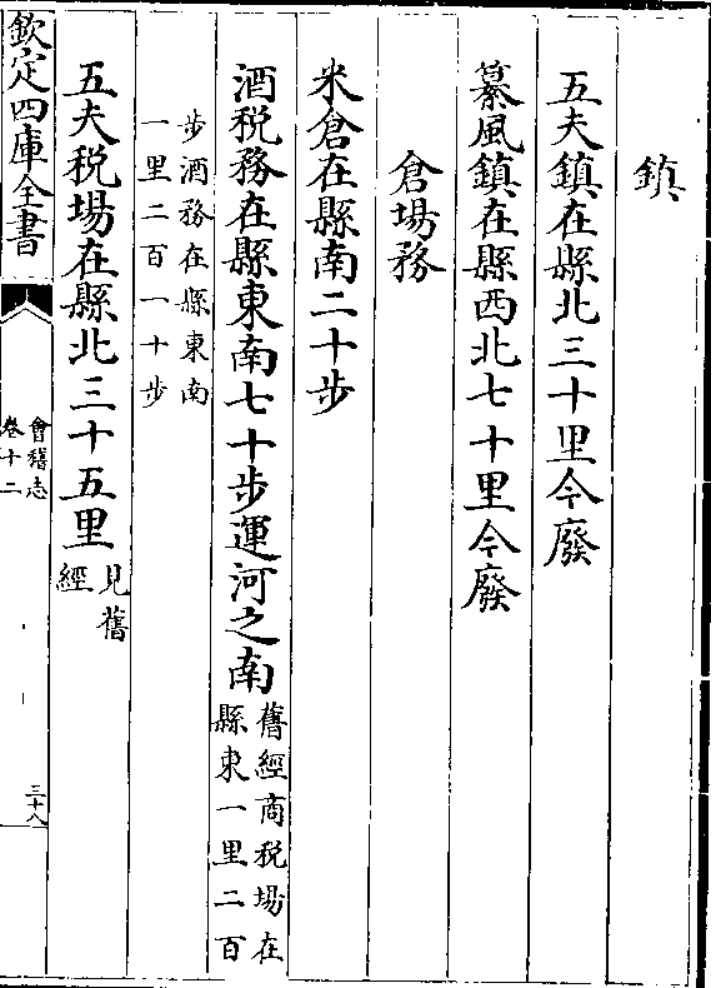 鎮
五夫鎮在縣北三十里今廢
纂風鎮在縣西北七十里今廢
倉場務
米倉在縣南二十步
酒税務在縣東南七十步運河之南
舊經商税場在
縣東一里二百
步酒務在縣東南
一里二百一十步
五夫税場在縣北三十五里
見舊
經
欽定四庫全書
會稽志
卷十二
三十八